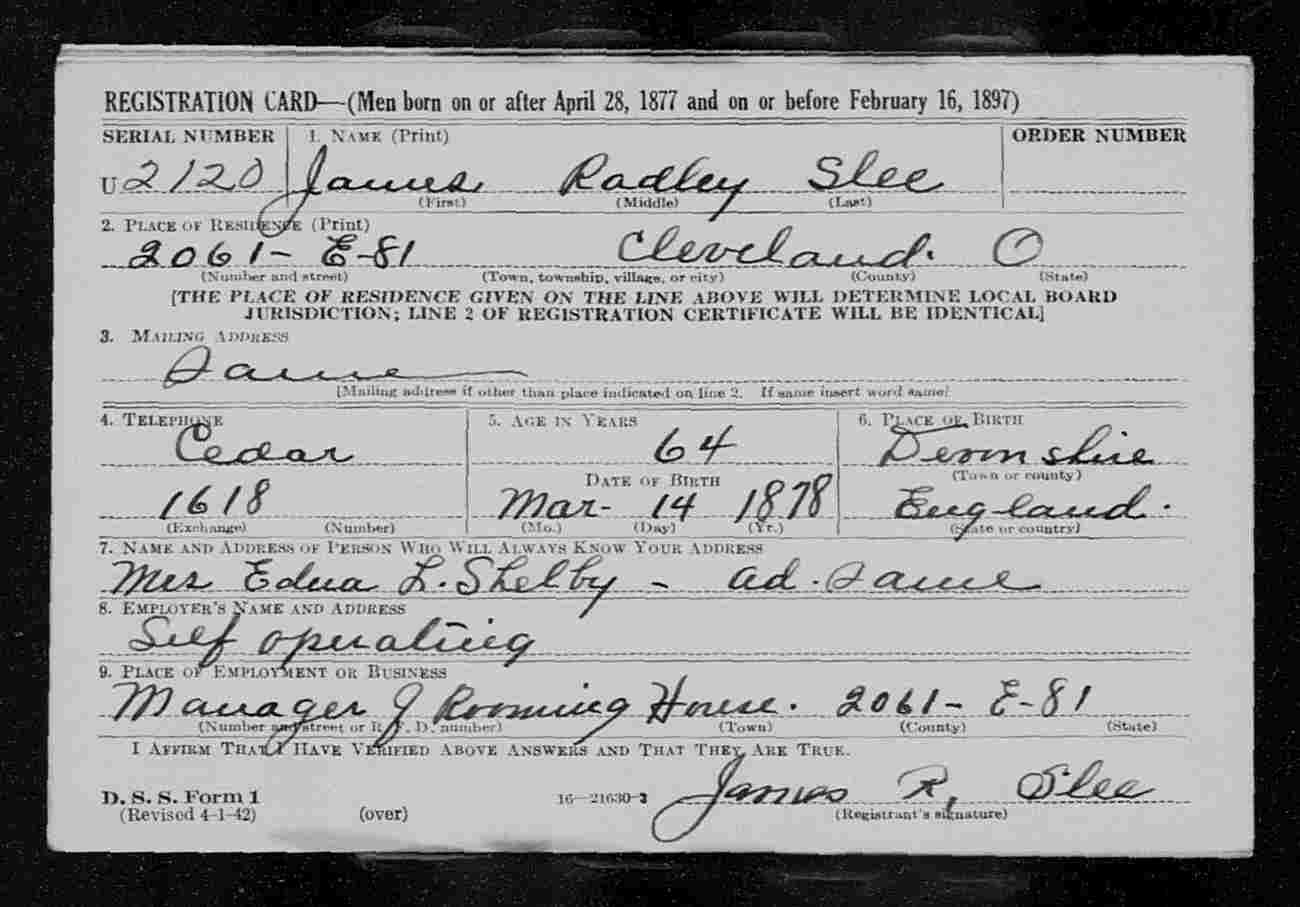 REGISTRATION CARD—(Men born on or after April 28, 1877 and on or before February 16, 1897)
SERIAL NUMBER 1. NAME (Print) ORDER NUMBER
U 2120 James Radley Slee
(First) (Middle) (Last)
2. PLACE OF RESIDENCE (Print)
2061- E-81 Cleveland. O
(Number and street) (Town, township, village, or city) (County) (State)
[THE PLACE OF RESIDENCE GIVEN ON THE LINE ABOVE WILL DETERMINE LOCAL BOARD
JURISDICTION; LINE 2 OF REGISTRATION CERTIFICATE WILL BE IDENTICAL]
3. MAILING ADDRESS
Same
[Mailing address if other than place indicated on line 2. If same insert word same]
4. TELEPHONE 5. AGE IN YEARS 6. PLACE OF BIRTH
Cedar 64 Devonshire
(Town or county)
DATE OF BIRTH
1618 Mar- 14 1878 England.
(Exchange) (Number) (Mo.) (Day) (Yr.) (State or country)
7. NAME AND ADDRESS OF PERSON WHO WILL ALWAYS KNOW YOUR ADDRESS
Mrs Edna L. Shelby - ad. Same
8. EMPLOYER'S NAME AND ADDRESS
Self operating
9. PLACE OF EMPLOYMENT OR BUSINESS
Manager of Rooming House. 2061- E-81
(Number and street or R. F. D. number) (Town) (County) (State)
I AFFIRM THAT I HAVE VERIFIED ABOVE ANSWERS AND THAT THEY ARE TRUE.
James R. Slee
D. S. S. Form 1 16—21630-2
(Revised 4-1-42) (over) (Registrant's signature)